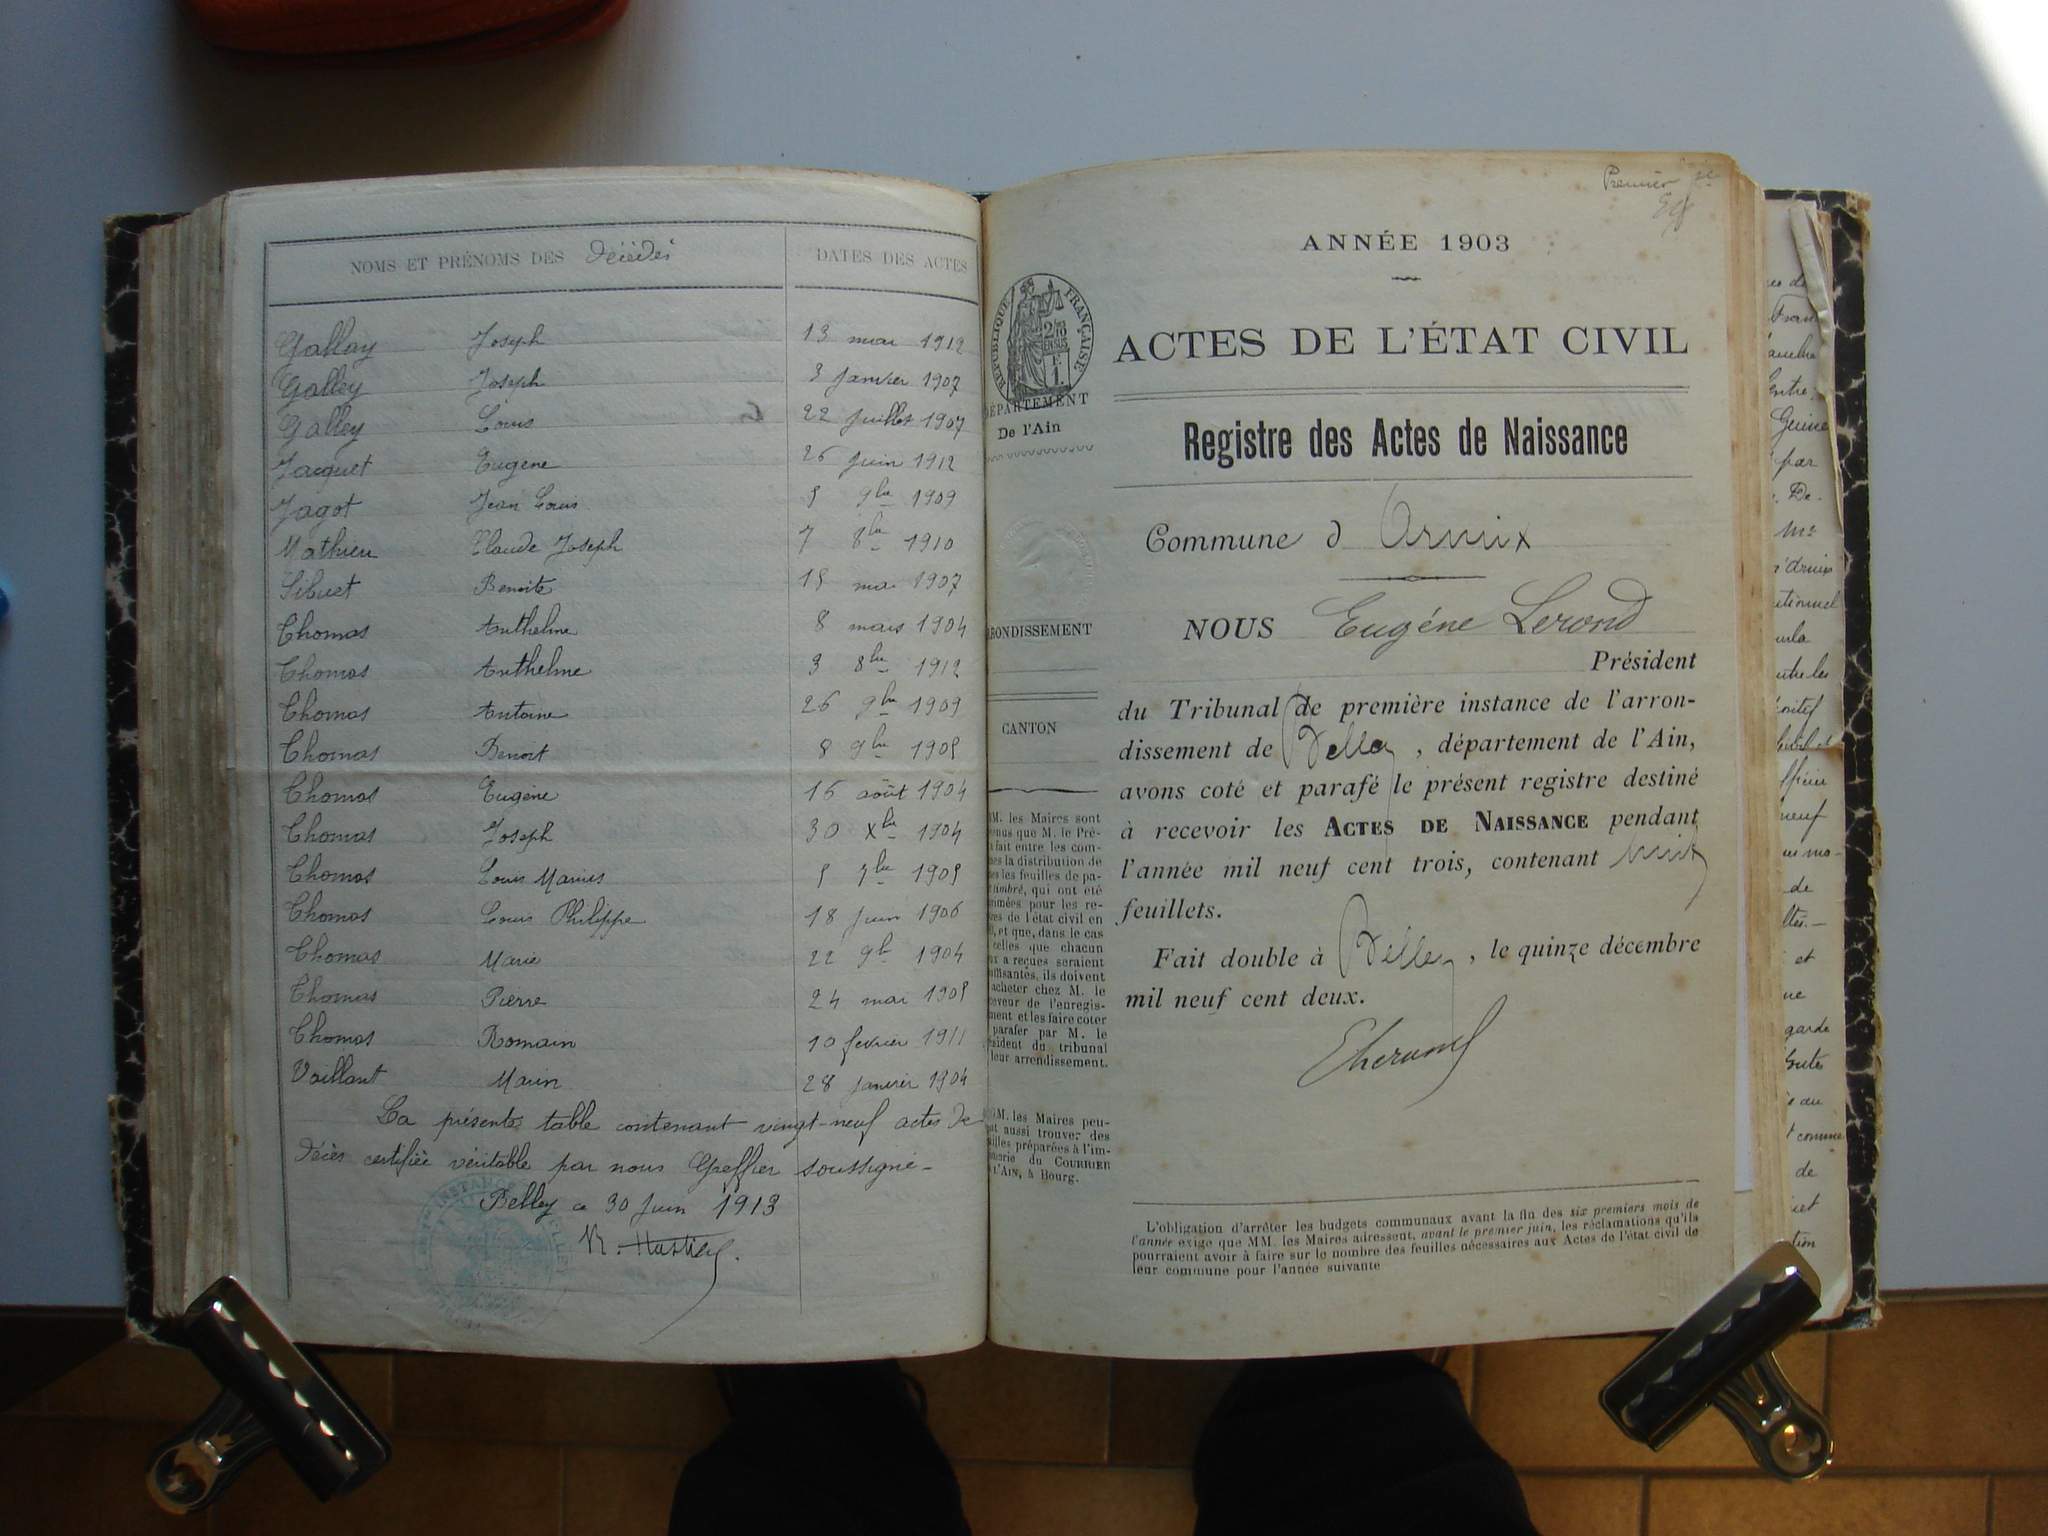 NOMS ET PRÉNOMS DES Décédés DATES DES ACTES
Gallay Joseph 13 mai 1912
Galley Joseph 3 janvier 1907
Galley Louis 22 juillet 1907
Jacquet Eugène 26 juin 1912
Jagot Jean Louis 5 9bre 1909
Mathieu Claude Joseph 7 8bre 1910
Sibuet Benoite 15 mai 1907
Thomas Anthelme 8 mars 1904
Thomas Anthelme 3 8bre 1912
Thomas Antoine 26 9bre 1909
Thomas Benoit 8 9bre 1905
Thomas Eugène 16 août 1904
Thomas Joseph 30 Xbre 1904
Thomas Louis Marius 5 7bre 1905
Thomas Louis Philippe 18 juin 1906
Thomas Marie 22 9bre 1904
Thomas Pierre 24 mai 1905
Thomas Romain 10 fevrier 1911
Vaillant Marin 28 janvier 1904
La présente table contenant vingt-neuf actes de
décès certifiée véritable par nous Greffier soussigné-
Belley ce 30 Juin 1913
Premier
ANNÉE 1903
RÉPUBLIQUE FRANÇAISE
ACTES DE L'ÉTAT CIVIL
DÉPARTEMENT
De l'Ain
Registre des Actes de Naissance
Commune d Arnix
NOUS Eugéne Lerond
Président
RONDISSEMENT
CANTON
du Tribunal de première instance de l'arron-
dissement de Belley, département de l'Ain,
avons coté et parafé le présent registre destiné
à recevoir les ACTES DE NAISSANCE pendant
l'année mil neuf cent trois, contenant huit
feuillets.
Fait double à Belley, le quinze décembre
mil neuf cent deux.
M. les Maires sont
nus que M. le Pré-
fait entre les com-
es la distribution de
es les feuilles de pa-
timbré, qui ont été
imées pour les re-
es de l'état civil en
, et que, dans le cas
celles que chacun
x a reçues seraient
uffisantes, ils doivent
acheter chez M. le
ceveur de l'enregis-
ment et les faire coter
parafer par M. le
ésident du tribunal
leur arrondissement.
M. les Maires peu-
nt aussi trouver des
illes préparées à l'im-
merie du COURRIER
L'AIN, à Bourg.
L'obligation d'arrêter les budgets communaux avant la fin des six premiers mois de
l'année exige que MM. les Maires adressent, avant le premier juin, les réclamations qu'ils
pourraient avoir à faire sur le nombre des feuilles nécessaires aux Actes de l'état civil de
leur commune pour l'année suivante